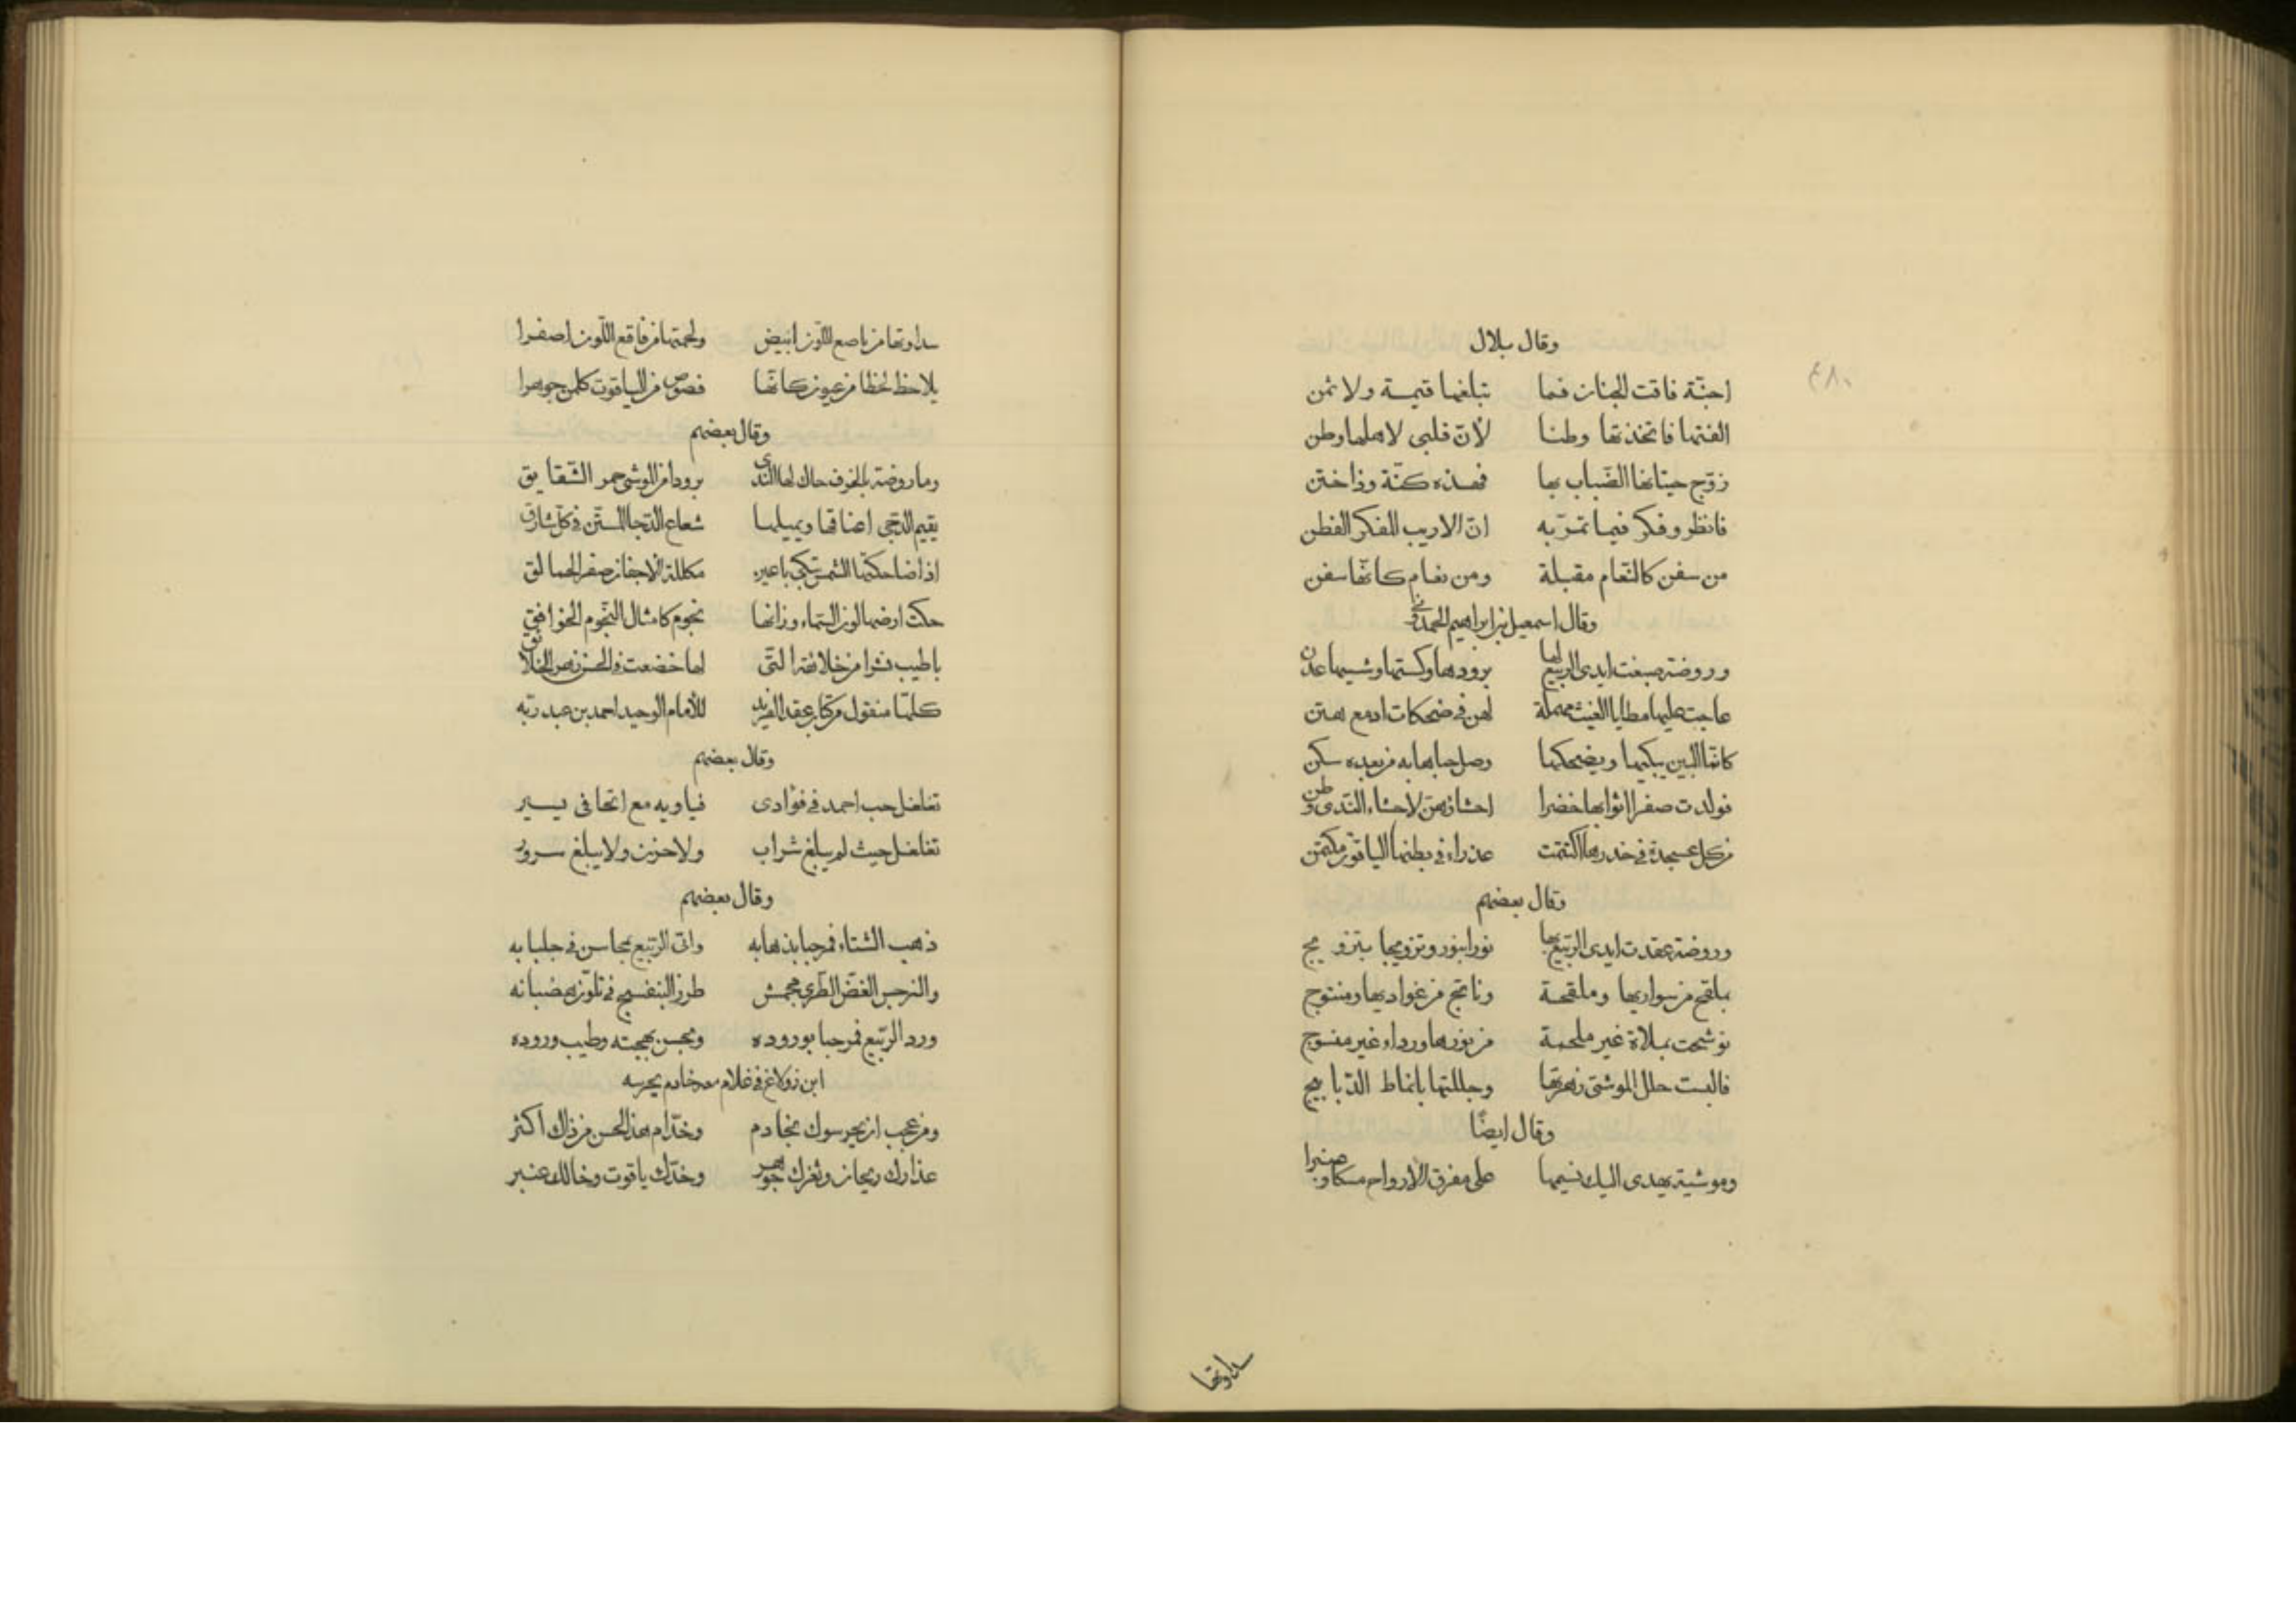 وقال بلال
احنّة فاقت الجنان فما تبلغها قيمة ولا ثمن
الفتها فاتخذتها وطنا لأنّ قلبى لاهلها وطن
زوّج حيتانها الضّباب بها فهذه كنّة وذا ختن
فانظر وفكر فيما تمرّ به انّ الاريب المفكر الفطن
من سفن كالنّعام مقبلة ومن نعام كانّها سفن
وقال اسمعيل بن ابراهيم الحمدونى
وروضة صبغت ايدى الربيع لها برودها وكستها وشيها عدن
عاجت عليها مطايا الغيث مهملة لهن فى ضحكات ادمع هتن
كانّما البين يبكيها ويضحكها وصل حباها به من بعده سكن
فولدت صفرا اثوابها خضرا احشاؤهنّ لاحشاء النّدى وطن
من كل عسجدة فى خدرها اكتتمت عذراء فى بطنها الياقوت مكتمن
وقال بعضهم
وروضة عقدت ايدى الربّيع بها نورا بنور وتزويجا بتزويج
بملقح من سواريها وملقحة وناتج من غواديها ومنتوج
توشحت بملاة غير ملحمة من نورها ورداء غير منسوج
فالبست حلل الموشى زهرتها وجللتها بانماط الدّبابيج
وقال ايضًا
وموشية يهدى اليك نسيمها على مفرق الارواح مسكا وعنبرا
سداوتها
٤٨٠
سداوتها من ناصع اللّون ابيض ولحمتها من فاقع اللّون اصفرا
يلاحظ لحظا من عيون كانّها فصوص من الياقوت كلمن جوهرا
وقال بعضهم
وما روضة بالخوف حاك لها النّدى برودا من الوشى حمر الشّقايق
يقيم الدّجى اعناقها ويميلها شعاع فى كل شارق
اذا ضاحكتها الشّمس تبكى باعين مكللة الاجفان صفر الحمالق
حكت ارضها لون السّماء وزانها نجوم كامثال النّجوم الخوافق
باطيب نشرا من خلائقه التّى لها خضعت فى الحسن زهر الخلائق
كلهّا منقول من كتاب عقد الفريد للأمام الوحيد احمد بن عبد ربّه
وقال بعضهم
تغلغل حب احمد فى فؤادى فباديه مع الخافى يسير
تغلغل حيث لم يبلغ شراب ولا حزن ولا يبلغ سرور
وقال بعضهم
ذهب الشّتاء فمرحبا بذهابه واتى الرّبيع بمحاسن فى جلبابه
والنرجس الغضّ الطّرى طرز البنفسج فى تلوّن هضباته
ورد الرّبيع فمرحبا بوروده وبحسن بهجته وطيب وروده
ابن زولاغ فى غلام معه خادم يحرسه
ومن عجب ان يحرسوك بخادم وخدّام هذا الحسن من ذاك اكثر
عذارك ريحان وثغرك جوهر وخدّك ياقوت وخالك عنبر